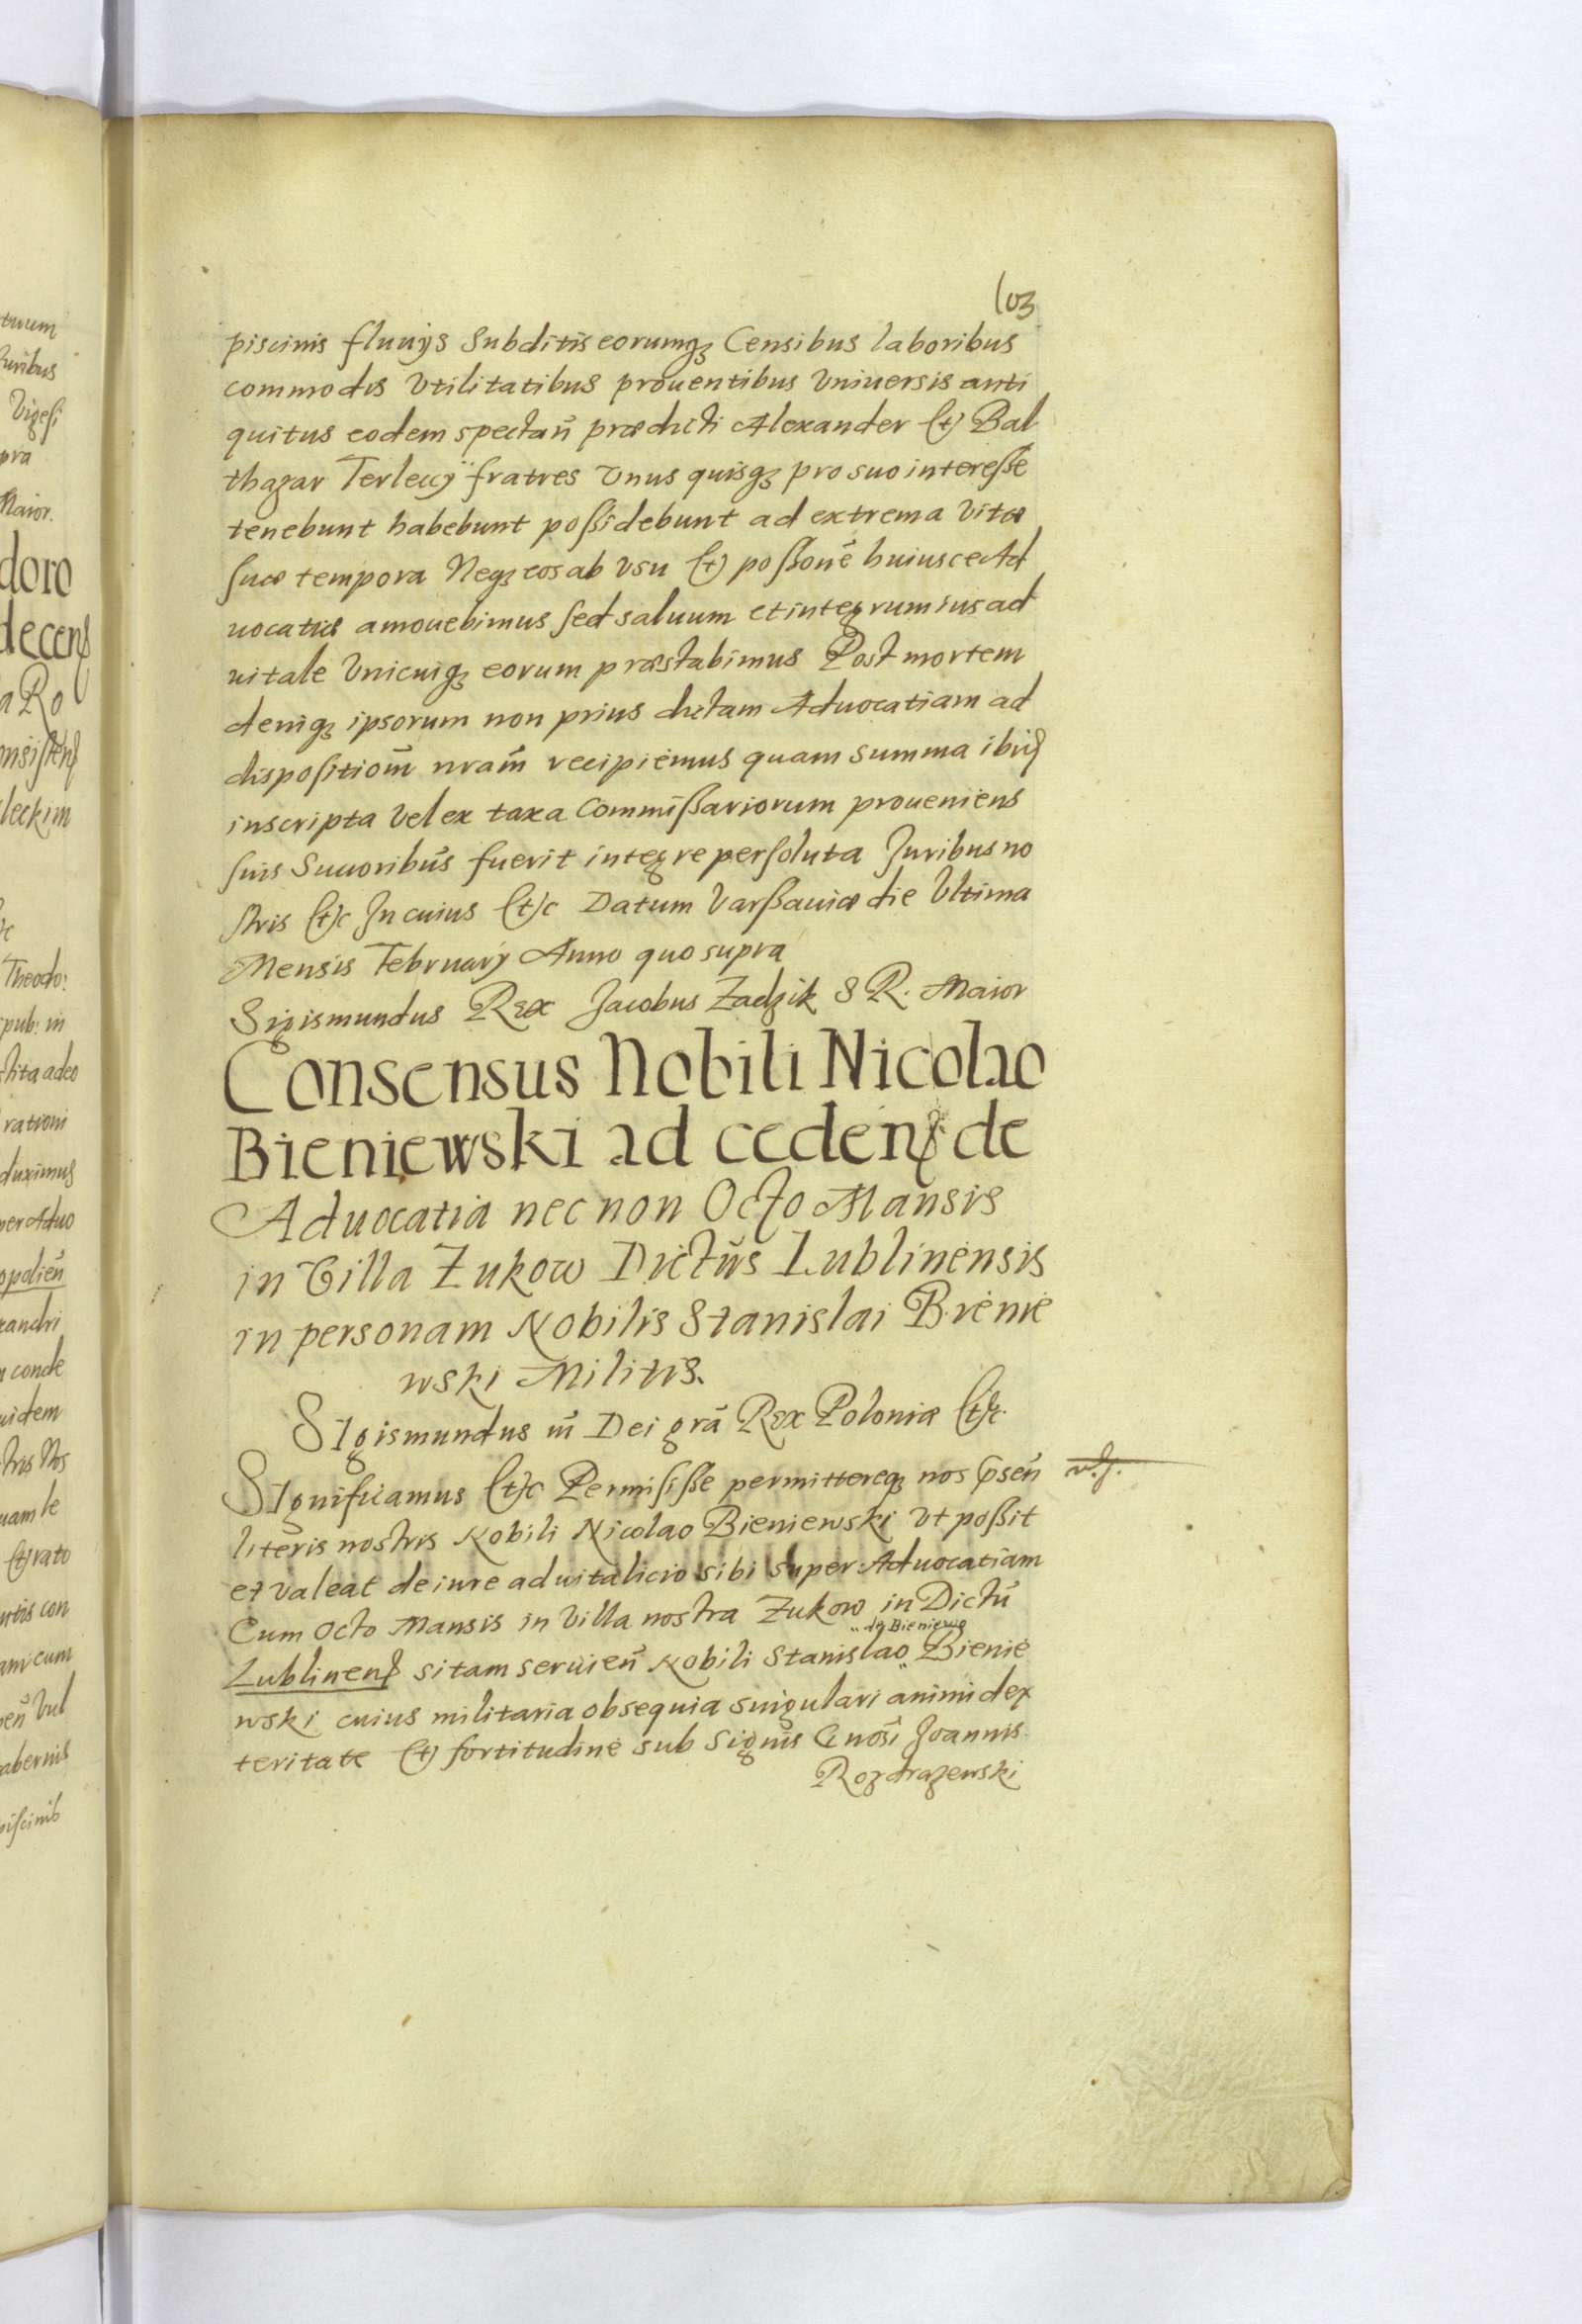 103
piscinis fluuijs Subditis eorumq₃ Censibus laboribus
commodis Vtilitatibus prouentibus Vniuersis anti
quitus eodem spectan̄ prædicti Alexander et Bal
thazar Terleccÿ fratres Vnus quisq₃ pro suo interesse
tenebunt habebunt possidebunt ad extrema Vitæ
suæ tempora Neq₃ eos ab vsu et possonē huiusce Ad
uocatiæ amouebimus sed saluum et integrum ius ad
uitale Vnicuiq₃ eorum præstabimus Post mortem
deniq₃ ipsorum non prius dictam Aduocatiam ad
dispositiom̄ nram̄ recipiemus quam summa ibid
inscripta vel ex taxa Commissariorum proueniens
suis Succoribus fuerit integre persoluta Juribus no
stris etc In cuius etc Datum Varssauiæ die Vltima
Mensis Februarij Anno quo supra
Sigismundus Rex Jacobus Zadzik S R. Maior
Consensus Nobili Nicolao
Bieniewski ad cedend de
Aduocatia nec non Octo Mansis
in Villa Zukow Dictūs Lublinensis
in personam Nobilis Stanislai Bienie
wski Militis.
SIgismundus iii Dei grā Rex Poloniæ etc.
SIgnificamus etc Permisisse permittereq₃ nos p̄sen̄
literis nostris Nobili Nicolao Bieniewski vt possit
et valeat de iure aduitalicio sibi super Aduocatiam
Cum Octo Mansis in Villa nostra Zukow in Dictū
de Bieniewo
Lublinens sitam seruien̄ Nobili Stanislao Bienie
wski cuius militaria obsequia singulari animi dex
teritate et fortitudine sub Signis Gnosi Joannis
Rozdrazewski